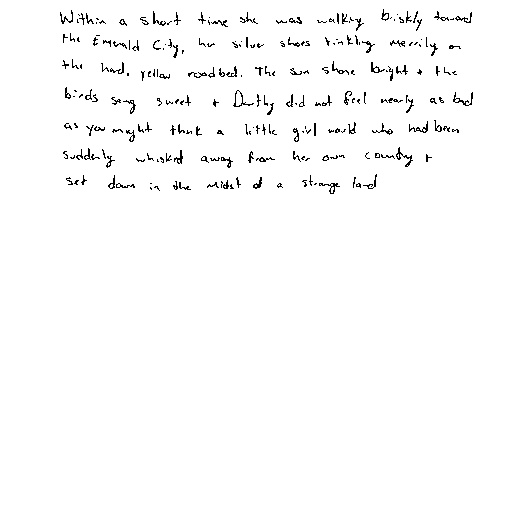 Within a short time she was walking briskly toward
the Emerald City, her silver shoes tinkling merrily on
the hard, yellow roadbed. The sun shone bright + the
birds sang sweet + Dorthy did not feel nearly as bad
as you might think a little girl would who had been
suddenly whisked away from her own country +
set down in the midst of a strange land